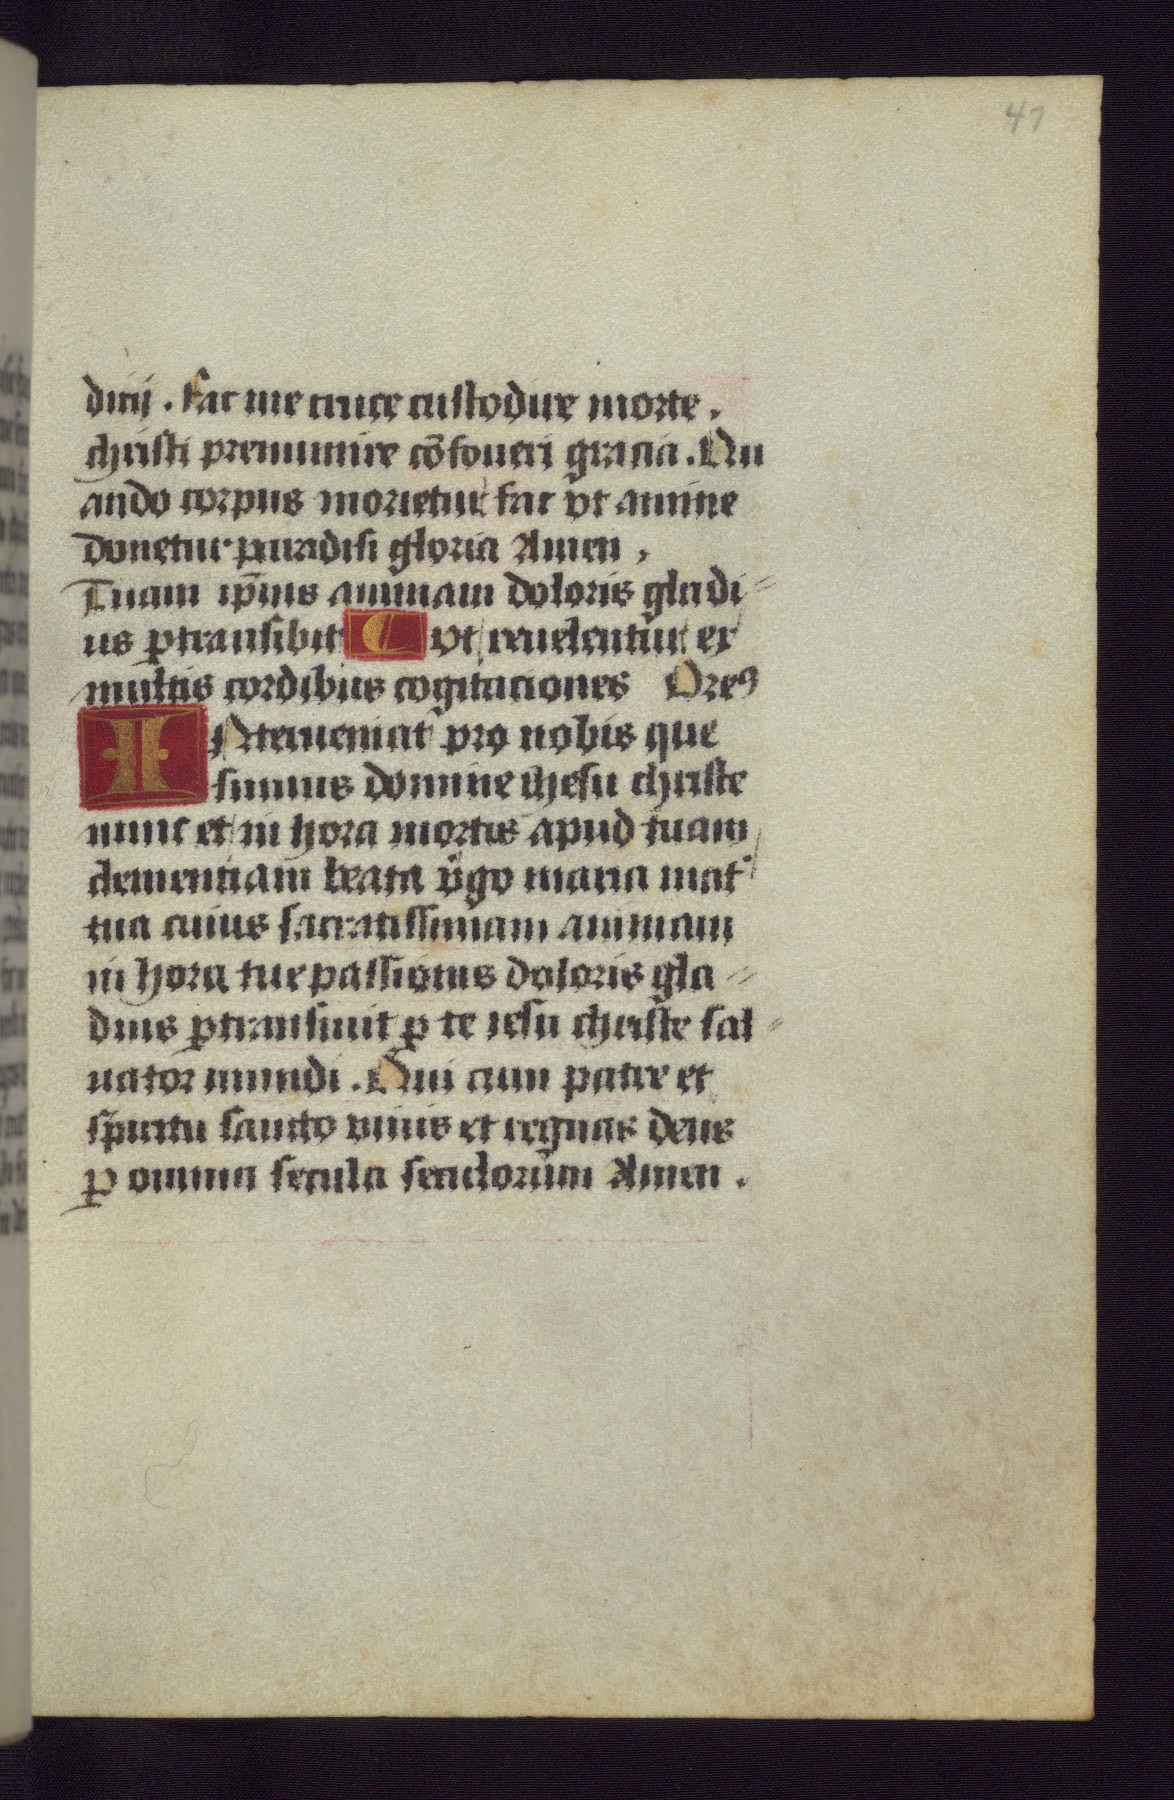 47
dicij. Fac me cruce custodire morte.
christi premunire cōfoueri gracia. Qu
ando corpus morietur fac vt anime
donetur paradisi gloria Amen,
Tuam ip̄ius animam doloris gladi⸗
us ꝑtransibit vt reuelentur ex
multis cordibus cogitaciones Oreꝰ
INterueniat pro nobis que
sumus domine ihesu christe
nunc et in hora mortis apud tuam
clementiam beata v̄go maria mat᷑
tua cuius sacratissimam animam
in hora tue passionis doloris gla⸗
dius ꝑtransiuit ꝑ te iesu christe sal⸗
uator mundi. Qui cum patre et
sp̄iritu sancto viuis et regnas deus
ꝑ omnia secula seculorum Amen.